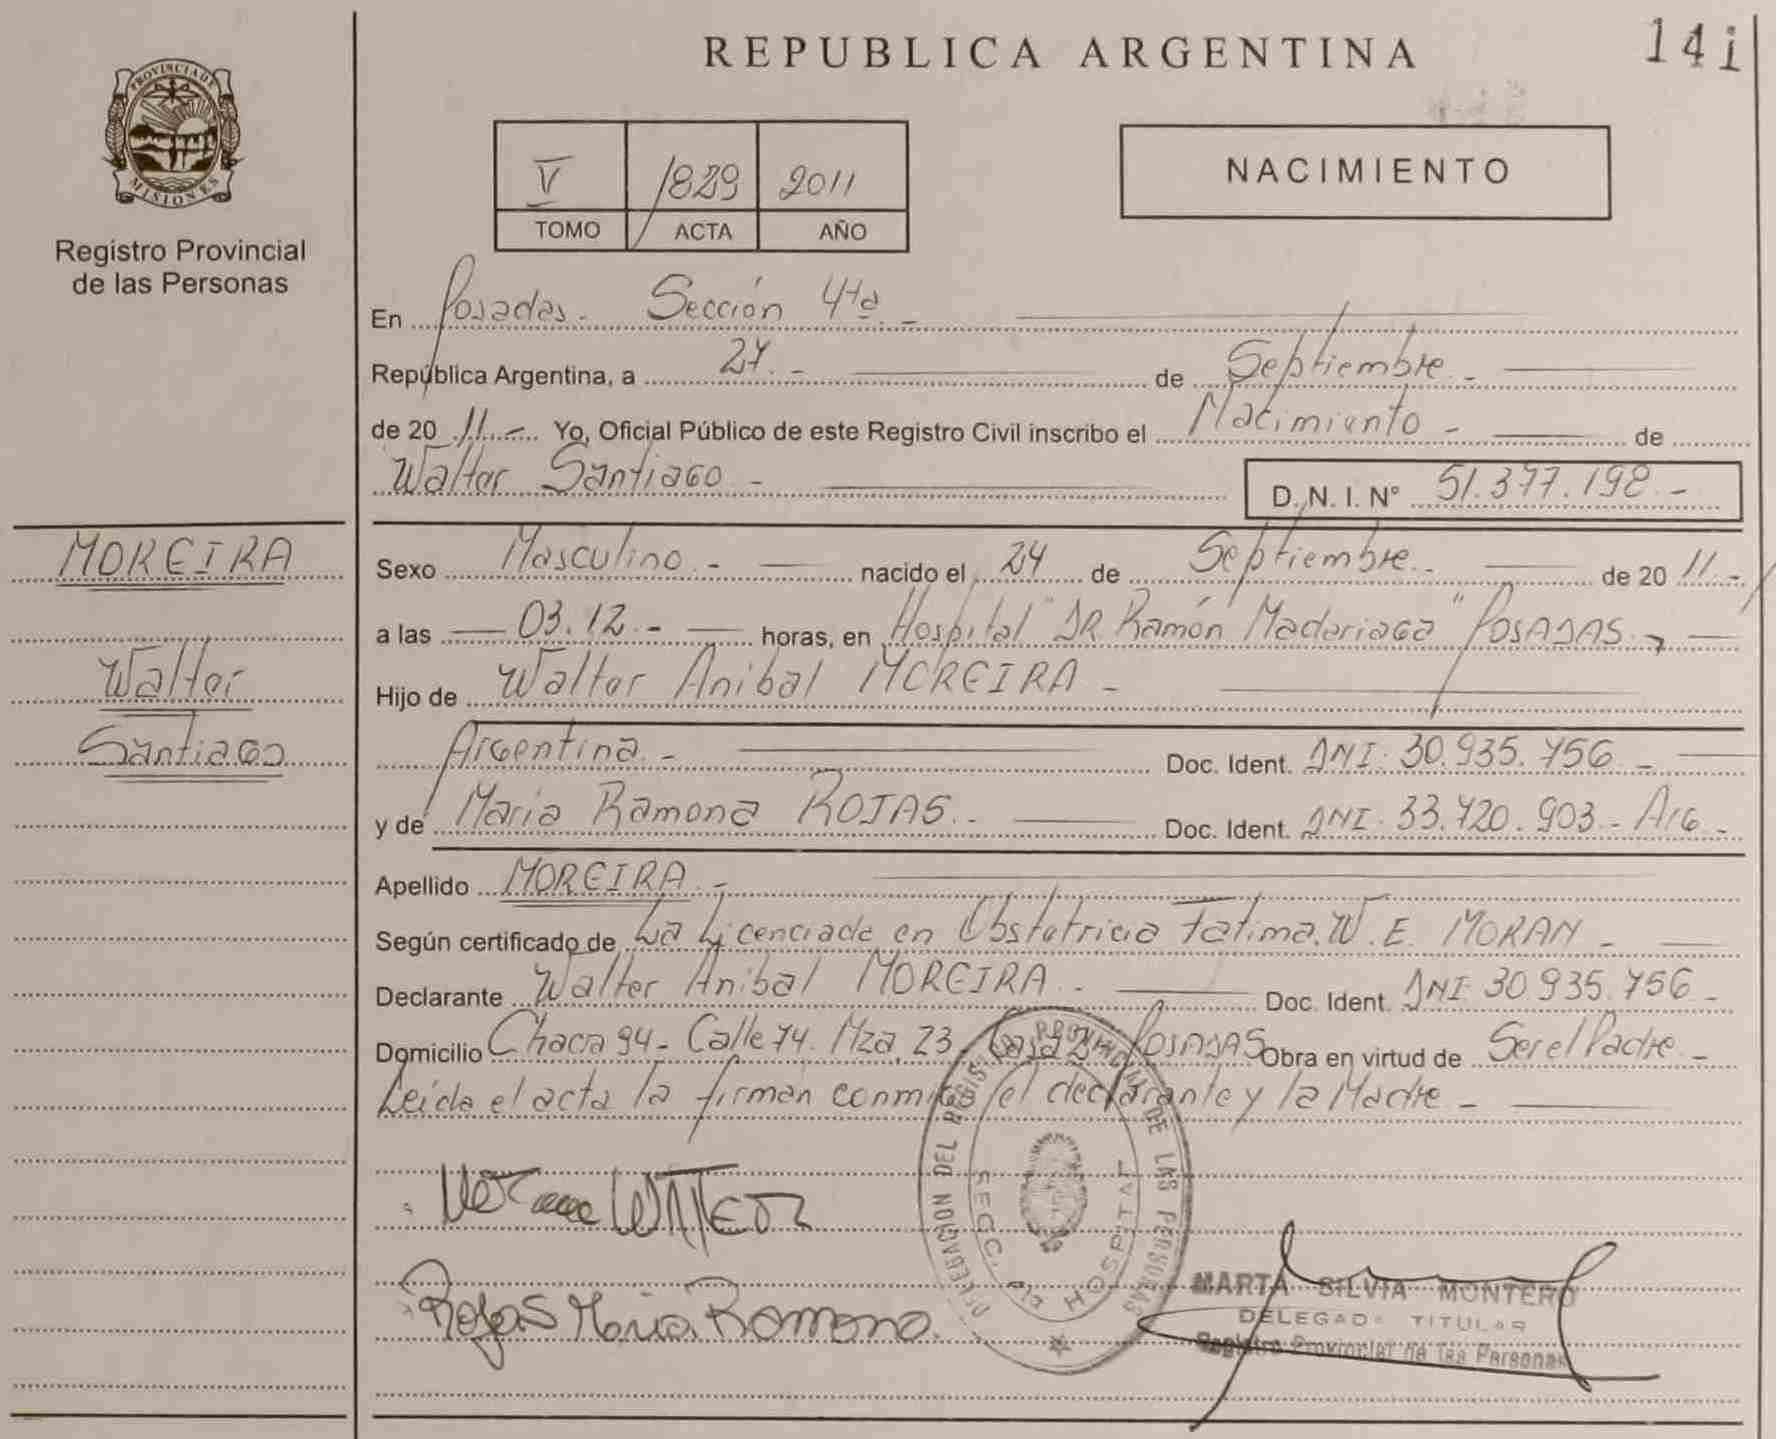 14i
REPUBLICA ARGENTINA
PROVINCIA DE
MISIONES
Registro Provincial
de las Personas
V 1829 2011
TOMO ACTA AÑO
NACIMIENTO
En Posadas. Sección 4ta. -
República Argentina, a 27. - de Septiembre. -
de 20 11. - Yo, Oficial Público de este Registro Civil inscribo el Nacimiento - de
Walter Santiago - D. N. I. N° 51.377.198. -
MOREIRA
Walter
Santiago
Sexo Masculino. - nacido el 24 de Septiembre. - de 20 11. -
a las 03.12. - horas, en Hospital "DR Ramón Madariaga" POSADAS. -
Hijo de Walter Anibal MOREIRA -
Argentina. - Doc. Ident. DNI: 30.935.756 -
y de Maria Ramona ROJAS. - Doc. Ident. DNI: 33.720.903. - Arg. -
Apellido MOREIRA. -
Según certificado de La Licenciada en Obstetricia Fatima. W. E. MORAN -
Declarante Walter Anibal MOREIRA. - Doc. Ident. DNI 30.935.756 -
Domicilio Chacra 94 - Calle 74. Mza. 23 - Casa POSADAS Obra en virtud de Ser el Padre -
Leida el acta la firman conmigo el declarante y la Madre -
DELEGACION DEL REGISTRO PROVINCIAL DE LAS PERSONAS
SECC. 4ta HOSPITAL
WALTER
Rojas Maria Ramona
MARTA SILVIA MONTERO
DELEGADA TITULAR
Registro Provincial de las Personas